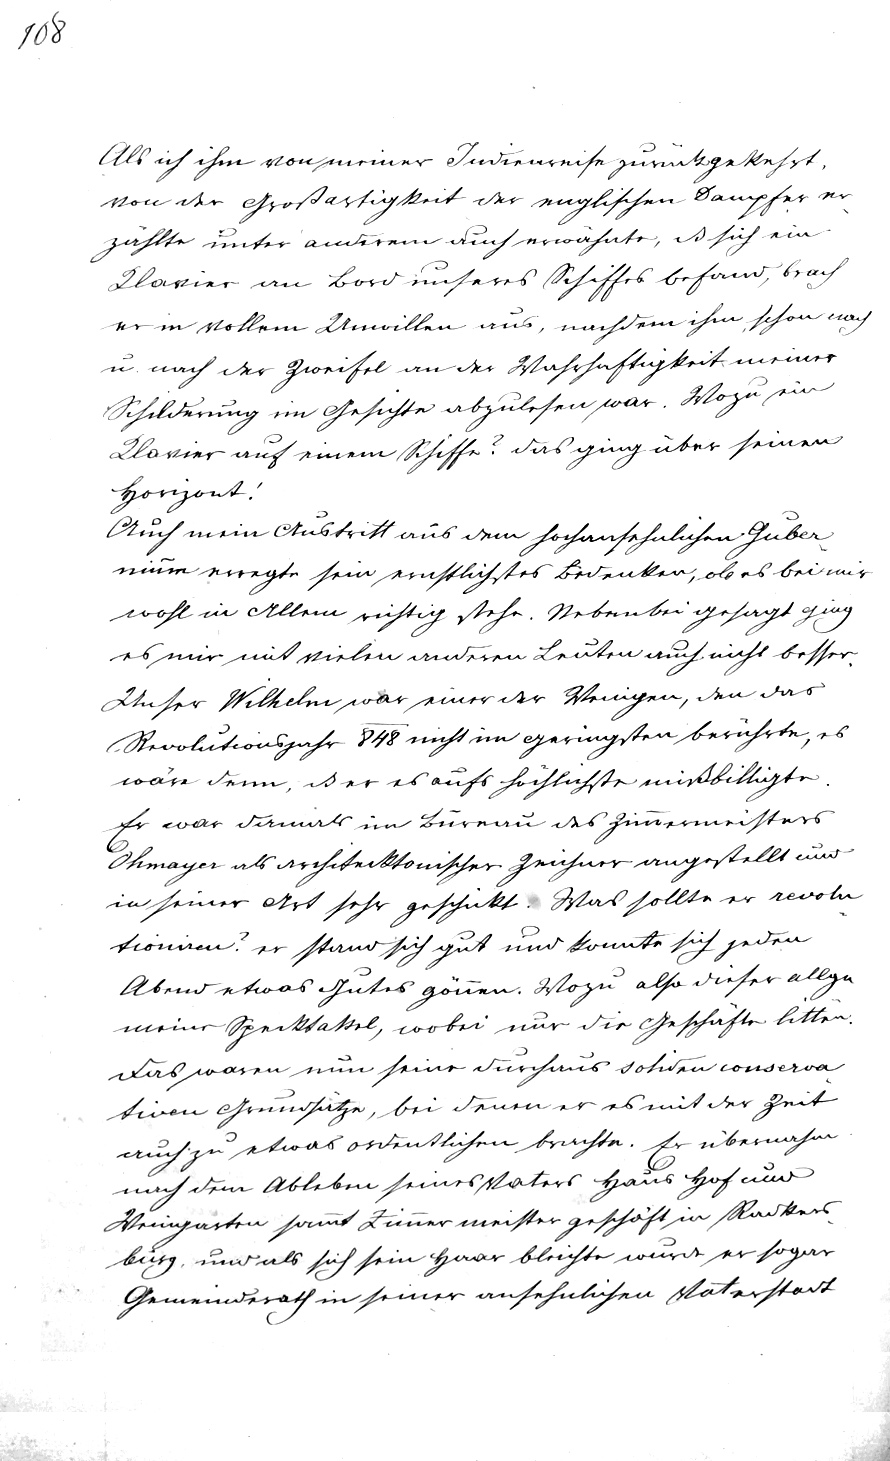 108
Als ich ihm von meiner Indienreise zurückgekehrt,
von der Großartigkeit der englischen Dampfer er¬
zählte unter anderem auch erwähnte, ß sich ein
Klavier an Bord unseres Schiffes befand, brach
er in vollem Unwillen aus, nachdem ihm schon nach
u. nach der Zweifel an der Wahrhaftigkeit meiner
Schilderung im Gesichte abzulesen war. Wozu ein
Klavier auf einem Schiffe? das ging über seinen
Horizont!
Auch mein Austritt aus dem hochansehnlichen Guber¬
nium erregte sein ernstlichstes Bedenken, ob es bei mir
wohl in Allem richtig stehe. Nebenbei gesagt ging
es mir mit vielen anderen Leuten auch nicht besser.
Unser Wilhelm war einer der Wenigen, den das
Revolutionsjahr 848 nicht im geringsten berührte, es
wäre denn, ß er es aufs höchlichste mißbilligte.
Er war damals im Bureau des Zim̄ermeisters
Ohmayer als architecktonischer Zeichner angestellt und
in seiner Art sehr geschickt. Was sollte er revolu¬
tioniren? er stand sich gut und konnte sich jeden
Abend etwas Gutes gön̄en. Wozu also dieser allge
meine Specktakel, wobei nur die Geschäfte litten.
Das waren nun seine durchaus soliden conserva¬
tiven Grundsätze, bei denen er es mit der Zeit
auch zu etwas ordentlichen brachte. Er übernahm
nach dem Ableben seines Vaters Haus Hof und
Weingarten sam̄t Zim̄ermeistergeschäft in Radkers¬
burg, und als sich sein Haar bleichte wurde er sogar
Gemeinderath in seiner ansehnlichen Vaterstadt